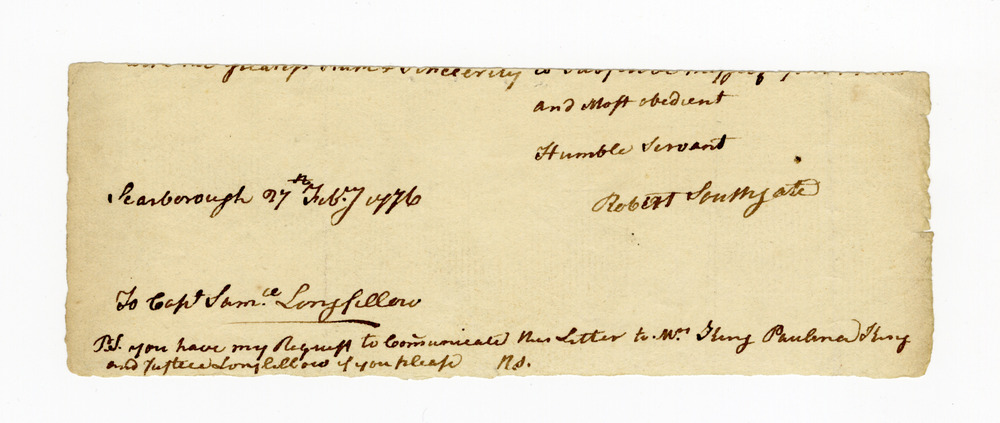 sincerity to
and Most obedient
Humble Servant
Scarborough 27th Feby 1776
Robert Southgate
To Capt Samll Longfellow
P.S. you have my Request to Communicate this Letter to Mrs King Paulina King
and Justice Longfellow if you please RS.